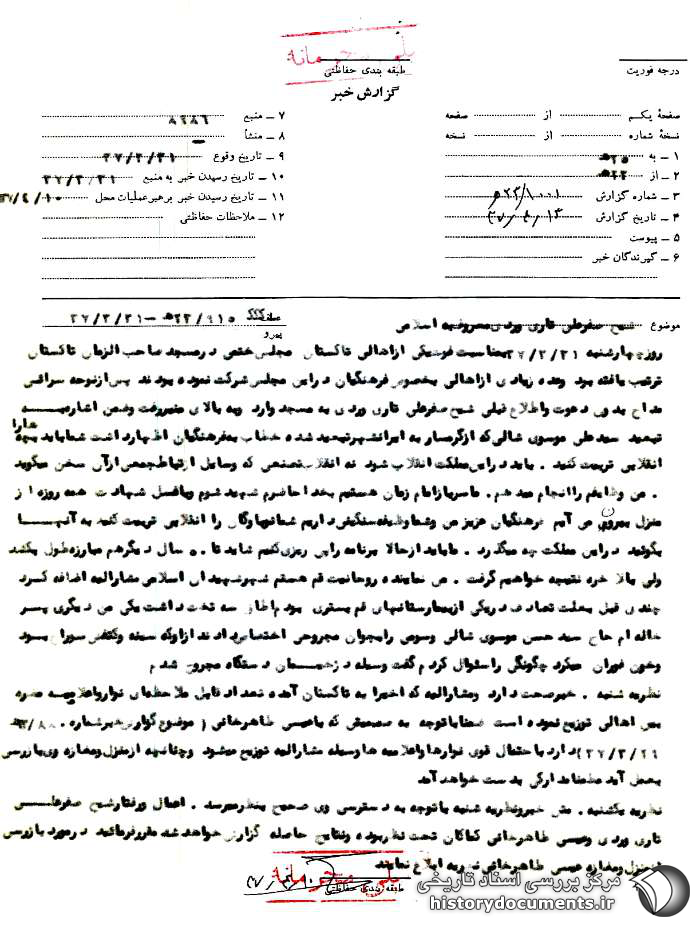 خیلی محرمانه
درجه فوریت
طبقه بندی حفاظتی
گزارش خبر
صفحهٔ یکم از صفحه
نسخهٔ شماره از نسخه
۱ ـ به ۲۵ ه
۲ ـ از ۲۲ ه
۳ ـ شماره گزارش
۴ ـ تاریخ گزارش
۵ ـ پیوست
۶ ـ گیرندگان خبر
۷ ـ منبع
۸ ـ منشأ
۹ ـ تاریخ وقوع ۳۷/۳/۳۱
۱۰ ـ تاریخ رسیدن خبر به منبع ۳۷/۳/۳۱
۱۱ ـ تاریخ رسیدن خبر برهبر عملیات محل
۱۲ ـ ملاحظات حفاظتی
موضوع شیخ صفرعلی تاری وردی معروف به اسلامی
پیرو
روز چهارشنبه بمناسبت فوت یکی از اهالی تاکستان مجلس ختمی در مسجد صاحب الزمان تاکستان
ترتیب یافته بود وعده زیادی از اهالی بخصوص فرهنگیان در این مجلس شرکت نموده بودند پس از نوحه سرائی
مداح بدون دعوت و اطلاع قبلی شیخ صفرعلی تاری وردی به مسجد وارد و به بالای منبر رفت وضمن اشاره به
تبعید سید علی موسوی شالی که از گرمسار به ایرانشهر تبعید شده خطاب به فرهنگیان اظهار داشت شما باید بچه ها را
انقلابی تربیت کنید . باید در این مملکت انقلاب شود نه انقلاب تصنعی که وسایل ارتباط جمعی از آن سخن میگوید
. من وظایفم را انجام میدهم . ما سرباز امام زمان هستیم بخدا حاضرم شهید شوم و با غسل شهادت همه روزه از
منزل بیرون می آیم فرهنگیان عزیز من وشما وظیفه سنگینی داریم شما نهاوگان را انقلابی تربیت کنید به آنها
بگوئید در این مملکت چه میگذرد . ما باید از حالا برنامه رایی ریزی کنیم شاید تا ۵۰ سال دیگر هم مبارزه طول بکشد
ولی بالاخره نتیجه خواهیم گرفت . من نماینده روحانیت قم هستم اسلامی مشارالیه اضافه کرد
چندی قبل بعلت تصادف در یکی از بیمارستانهای قم بستری بودم اطاق سه تخت داشت یکی من دیگری پسر
خاله ام حاج سید حسن موسوی شالی وسومی را بجوان مجروحی اختصاص دادند از او که سینه وکتفش سوراخ بود
وخون فوران میکرد چگونگی را سئوال کردم گفت وسیله دژخیمان دستگاه مجروح شدم
نظریه شنبه . خبر صحت دارد ومشارالیه که اخیرا به تاکستان آمده تعداد قابل ملاحظه ای نوار و اعلامیه مضره
بین اهالی توزیع نموده است ضمنا با توجه به صمیمیتی که با عیسی طاهرخانی ( موضوع گزارش خبر شماره
) دارد با احتمال قوی نوارها و اعلامیه ها وسیله مشارالیه توزیع میشود وچنانچه از منزل ومغازه وی بازرسی
بعمل آید مطمئنا مدارکی بدست خواهد آمد
نظریه یکشنبه . متن خبر ونظریه شنبه با توجه به دسترسی وی صحیح بنظر میرسد . اعمال و رفتار شیخ صفرعلی
تاری وردی وعیسی طاهرخانی کماکان تحت نظر بوده ونتایج حاصله گزارش خواهد شد مقرر فرمائید در مورد بازرسی
از منزل ومغازه عیسی طاهرخانی نظریه ابلاغ نمایند
خیلی محرمانه
طبقه بندی حفاظتی
مرکز بررسی اسناد تاریخی
historydocuments.ir